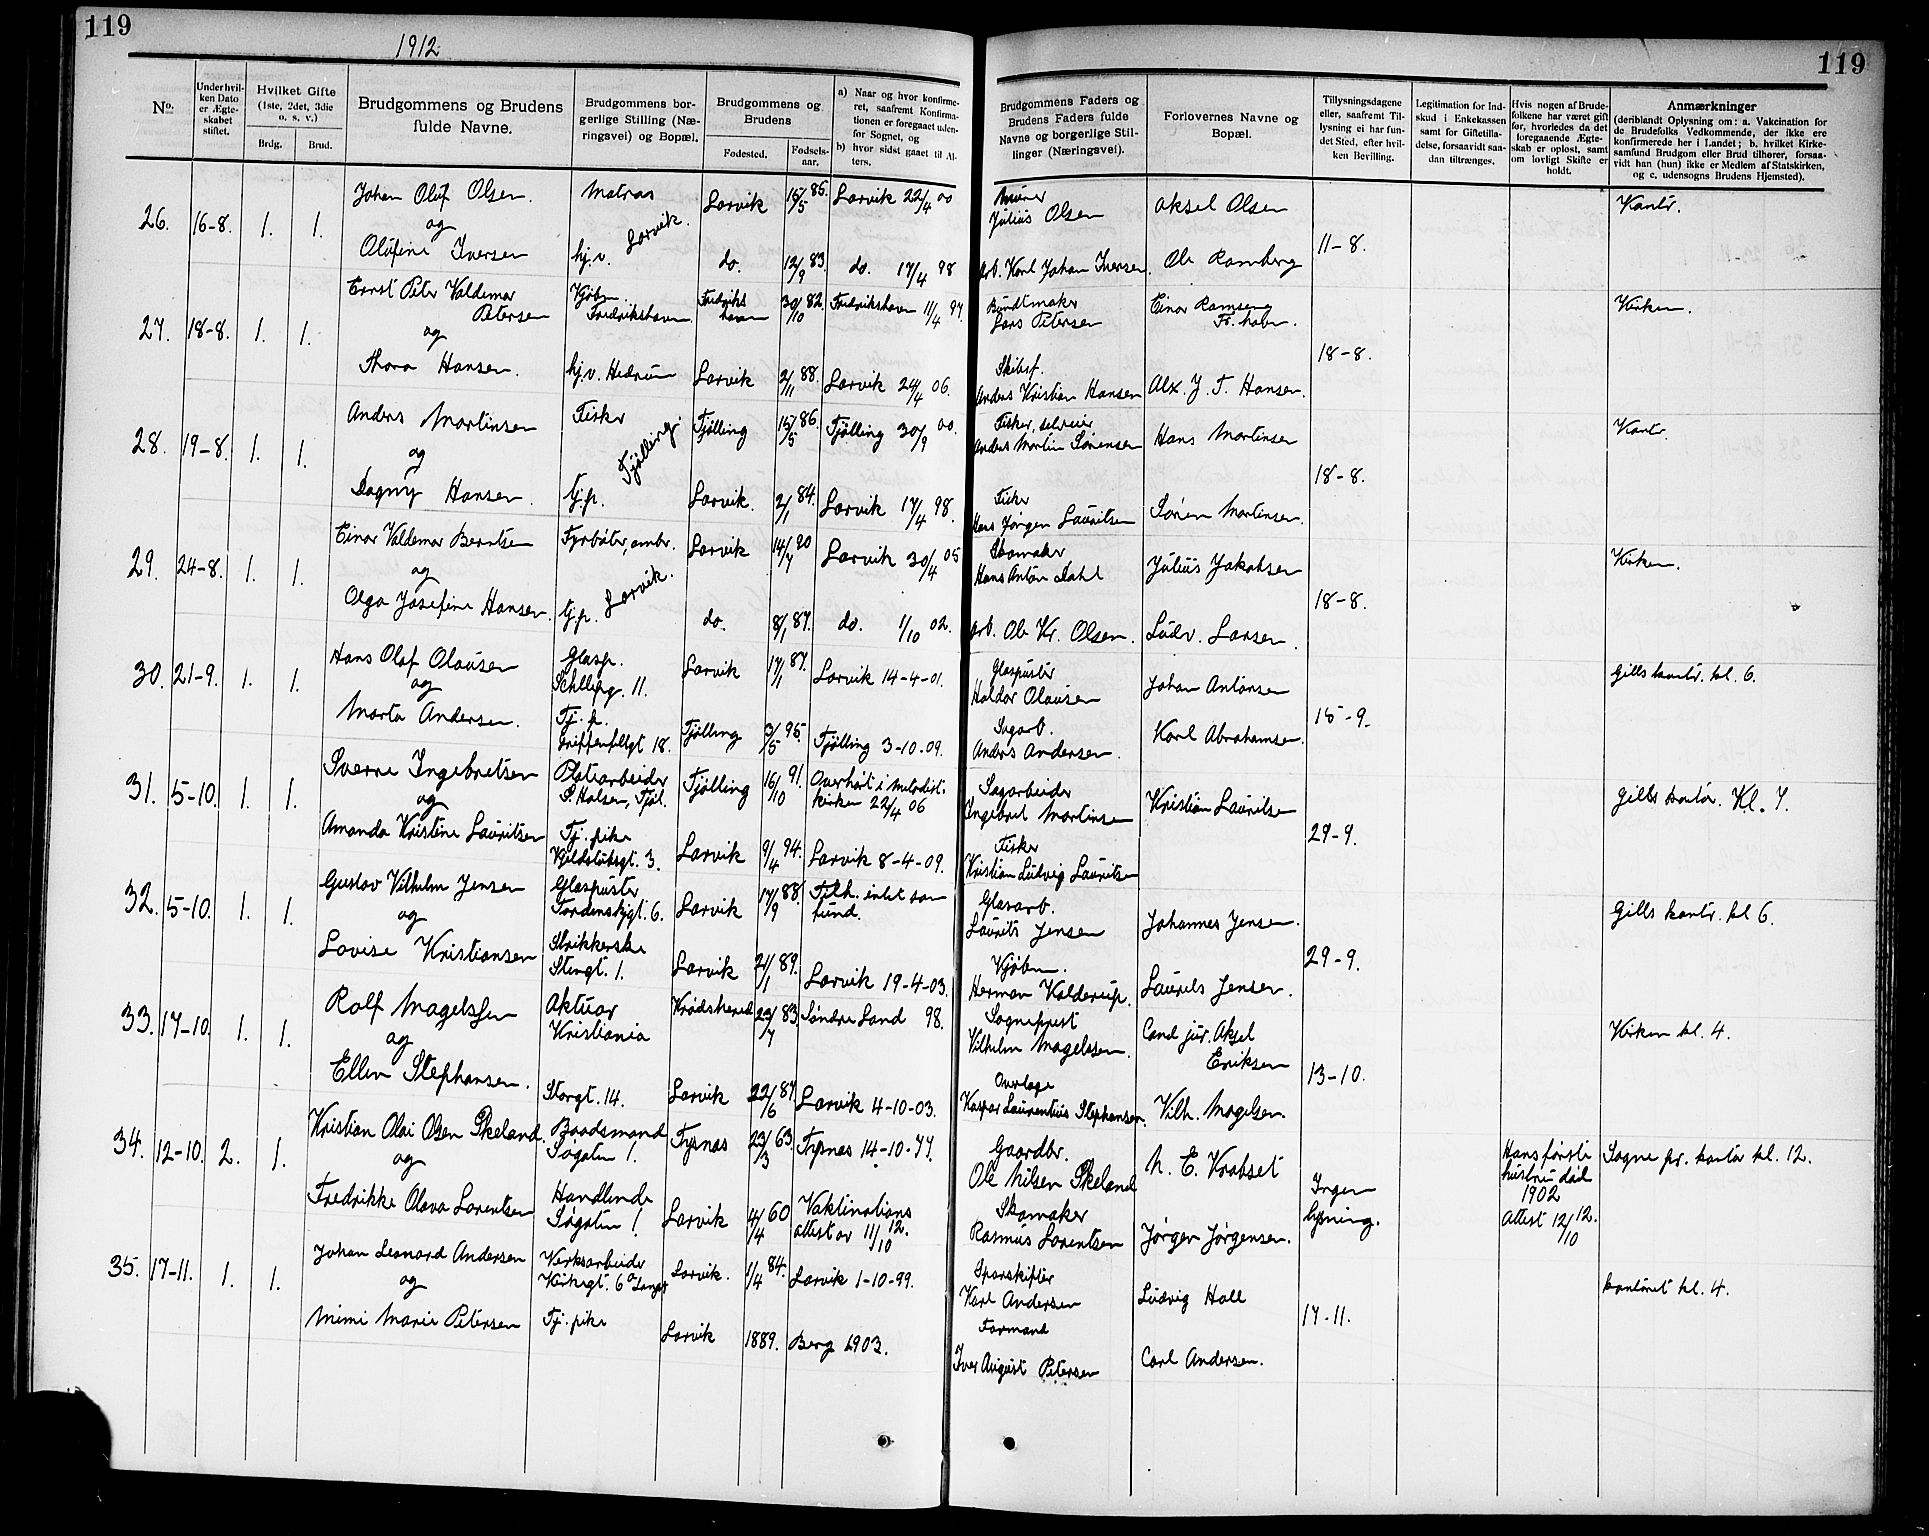 119
1912
119
No.
Under hvilken Dato er Ægteskabet stiftet.
Hvilket Gifte (1ste, 2det, 3die o. s. v.)
Brdg.
Brud.
Brudgommens og Brudens fulde Navne.
Brudgommens borgerlige Stilling (Næringsvei) og Bopæl.
Brudgommens og Brudens
Fødested.
Fødselsaar.
a) Naar og hvor konfirmeret, saafremt Konfirmationen er foregaaet udenfor Sognet, og
b) hvor sidst gaaet til Alters.
Brudgommens Faders og Brudens Faders fulde Navne og borgerlige Stillinger (Næringsvei).
Forlovernes Navne og Bopæl.
Tillysningsdagene eller, saafremt Tillysning ei har fundet Sted, efter hvilken Bevilling.
Legitimation for Indskud i Enkekassen samt for Giftetilladelse, forsaavidt saadan tiltrænges.
Hvis nogen af Brudefolkene har været gift før, hvorledes da det foregaaende Ægteskab er opløst, samt om lovligt Skifte er holdt.
Anmærkninger
(deriblandt Oplysning om: a. Vakcination for de Brudefolks Vedkommende, der ikke ere konfirmerede her i Landet; b. hvilket Kirkesamfund Brudgom eller Brud tilhører, forsaavidt han (hun) ikke er Medlem af Statskirken, og c. udensogns Brudens Hjemsted).
26. 16-8. 1. 1. Johan Oluf Olsen. Matros Larvik. Larvik 15/5 85. Larvik 22/4 00 Murer Julius Olsen Aksel Olsen 11-8. Kontr.
og
Olufine Iversen hj.v. do. 12/9 83. do. 17/4 98 arb. Karl Johan Iversen. Ole Ramberg
27. 18-8. 1. 1. Ernst Peter Valdemar Petersen Kjøbm. Fredrikshavn Fredrikshavn 30/10 82. Fredrikshavn 11/4 97. Bundtmaker Lars Petersen Einar Ramseng Fr. habn. 18-8. Kirken.
og
Thora Hansen. hj.v. Hedrum Larvik 2/11 88. Larvik 24/4 06. Skibsf. Anders Kristian Hansen Alx. J. F. Hansen.
28. 19-8. 1. 1. Anders Martinsen Fisker Tjølling Tjølling 15/5 86. Tjølling 30/9 00. Fisker, selveier Anders Martin Sørensen Hans Martinsen 18-8. Kontr.
og
Dagny Hansen. tj.p. Larvik. 2/1 84. Larvik 17/4 98. Fisker Hans Jørgen Lauritsen Søren Martinsen.
29. 24-8. 1. 1. Einar Valdemar Berntsen Fyrbøter, ombr. Larvik. Larvik 14/7 90 Larvik 30/4 05 Skomaker Hans Anton Dahl Julius Jakobsen 18-8. Kirken.
og
Olga Josefine Hansen. tj.p. do. 8/1 87. do. 1/10 02. arb. Ole Kr. Olsen. Ludv. Larsen.
30. 21-9. 1. 1. Hans Olaf Olausen Glasp. 11. Larvik 17/1 87. Larvik 14-4-01. Glaspuster Haldor Olausen Johan Antonsen 15-9. Gills kontr. kl. 6.
og
Marta Andersen. Tj. p. Griffenfeltgt 18. Tjølling 3/5 95. Tjølling 3-10-09. Sagarb. Anders Andersen. Karl Abrahamsen.
31. 5-10. 1. 1. Sverre Ingebretsen Platearbeider Ø. Halsen, Tjøl. Tjølling 16/10 91. Overhørt i Metodistkirken 22/4 06 Sagarbeider Ingebret Martinsen Kristian Lauritsen 29-9. Gills kontor. Kl. 7.
og
Amanda Kristine Lauritsen Tj. pike 3. Larvik 9/4 94. Larvik 8-4-09. Fisker Kristian Ludvig Lauritsen
32. 5-10. 1. 1. Gustav Vilhelm Jensen Glaspuster Tordenskjgt. 6. Larvik 17/9 88. Tilh. intet samfund. Glasarb. Laurits Jensen Johannes Jensen. 29-9. Gills kontr. kl 6.
og
Lovise Kristiansen Strikkerske Stengt. 1. Larvik 21/1 89. Larvik 19-4-03. Kjøbm. Herman Kolderup. Laurits Jensen.
33. 17-10. 1. 1. Rolf Magelssen Aktuar Kristiania Krødsherad 23/7 83. Søndre Land 98. Sogneprest Vilhelm Magelssen. Cand jur. Aksel Eriksen 13-10. Kirken kl. 4.
og
Ellen Stephansen. Storgt. 14. Larvik 22/6 87. Larvik 4-10-03. Overlæge Kaspar Laurentius Stephansen. Vilh. Magelsen.
34. 12-10. 2. 1. Kristian Olai Olsen Økeland. Baadsmand Søgaten 1. Tysnas 23/3 63. Tysnas 14-10-77. Gaardbr. Ole Nilsen Økeland N. E. Vrobset Ingen lysning. Hans første hustru død 1902 Attest 12/10 12. Sogne pr. kontor kl. 12.
og
Fredrikke Olava Lorentsen Handlende Søgaten 1. Larvik 4/4 60 Vaktinations attest av 11/10 12. Skomaker Rasmus Lorentsen Jørgen Jørgensen.
35. 17-11. 1. 1. Johan Leonard Andersen Verksarbeider Kirkegt. 6a Langes Larvik. 1/4 84. Larvik 1-10-99. Sporskifter Karl Andersen Ludvig Holl 17-11. kontoret kl. 4.
og
Mimi Marie Petersen Tj. pike Larvik 1889. Berg 1903. Formand Iver August Petersen Carl Andersen.